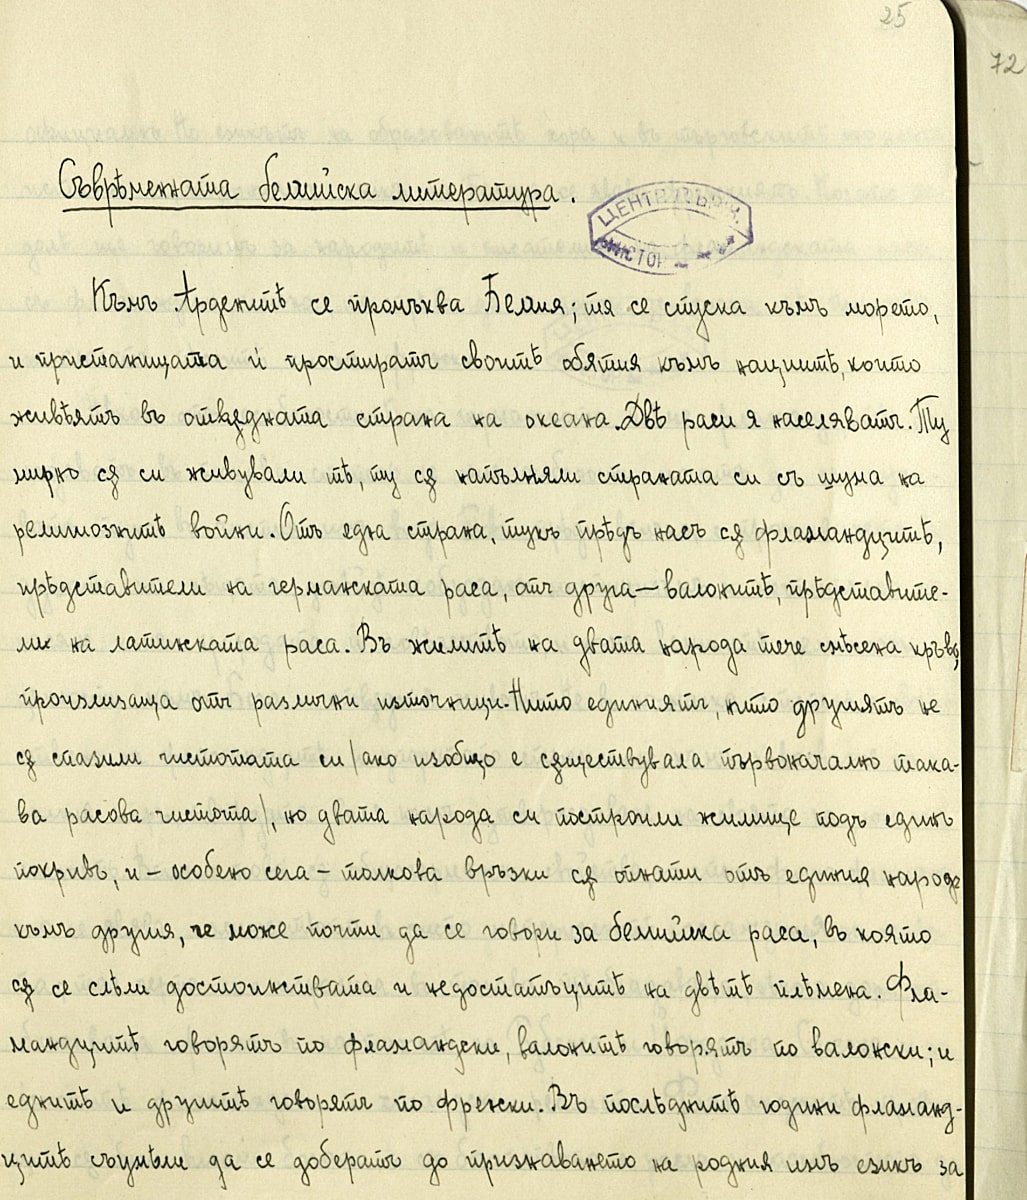 25
72
Съврѣменната белгийска литература.
ЦЕНТР
ИСТОР
Къмъ Арденитѣ се промъква Белгия; тя се спуска къмъ морето,
и пристанищата ѝ простиратъ своитѣ обятия къмъ нациитѣ, които
живѣятъ въ отвѫдната страна на океана. Двѣ раси я населяватъ. Ту
мирно сѫ си живували тѣ, ту сѫ напълняли страната си съ шума на
религиознитѣ войни. Отъ една страна, тукъ прѣдъ насъ сѫ фламандцитѣ,
прѣдставители на германската раса, отъ друга — валонитѣ, прѣдставите-
ли на латинската раса. Въ жилитѣ на двата народа тече смѣсена кръвь,
произлизаща отъ различни източници. Нито единиятъ, нито другиятъ не
сѫ спазили чистотата си /ако изобщо е сѫществувала първоначално така-
ва расова чистота/, но двата народа си построили жилище подъ единъ
покривъ, и – особено сега – толкова връзки сѫ опнати отъ единия народъ
къмъ другия, че може почти да се говори за белгийска раса, въ която
сѫ се слѣли достоинствата и недостатъцитѣ на двѣтѣ плѣмена. Фла-
мандцитѣ говорятъ по фламандски, валонитѣ говорятъ по валонски; и
еднитѣ и другитѣ говорятъ по френски. Въ послѣднитѣ години фламанд-
цитѣ съумѣли да се добератъ до признаването на родния имъ езикъ за